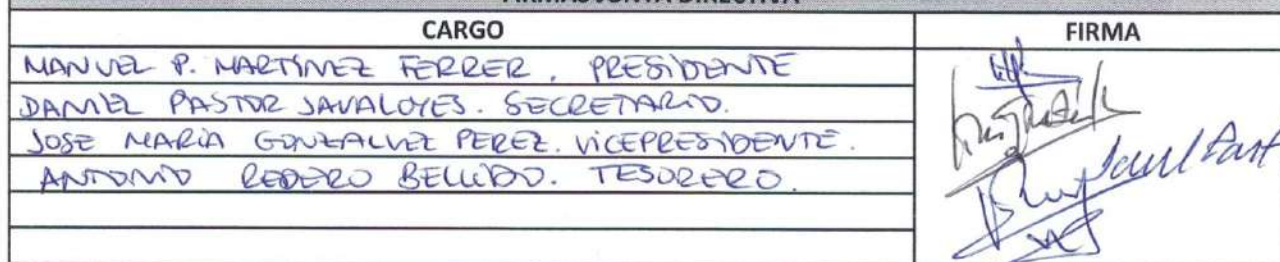 FIRMAS JUNTA DIRECTIVA
CARGO FIRMA
MANUEL P. MARTÍNEZ FERRER. PRESIDENTE
DANIEL PASTOR SAVALOYES. SECRETARIO.
JOSE MARÍA GONZALVEZ PEREZ. VICEPRESIDENTE.
ANTONIO REDERO BELLIDO. TESORERO.